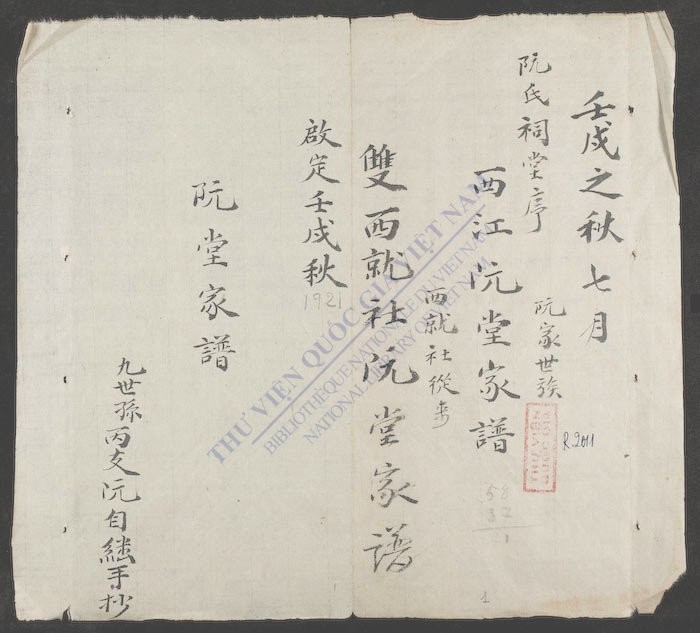 壬戌之秋七月
阮氏祠堂序
阮家世族
R.2011
西江阮堂家譜
58
37
21
西就社從來
雙西就社阮堂家譜
啟定壬戌秋
1921
阮堂家譜
九世孫丙支阮自繼手抄
THƯ VIỆN QUỐC GIA VIỆT NAM
BIBLIOTHÈQUE NATIONALE DU VIETNAM
NATIONAL LIBRARY OF VIETNAM
1